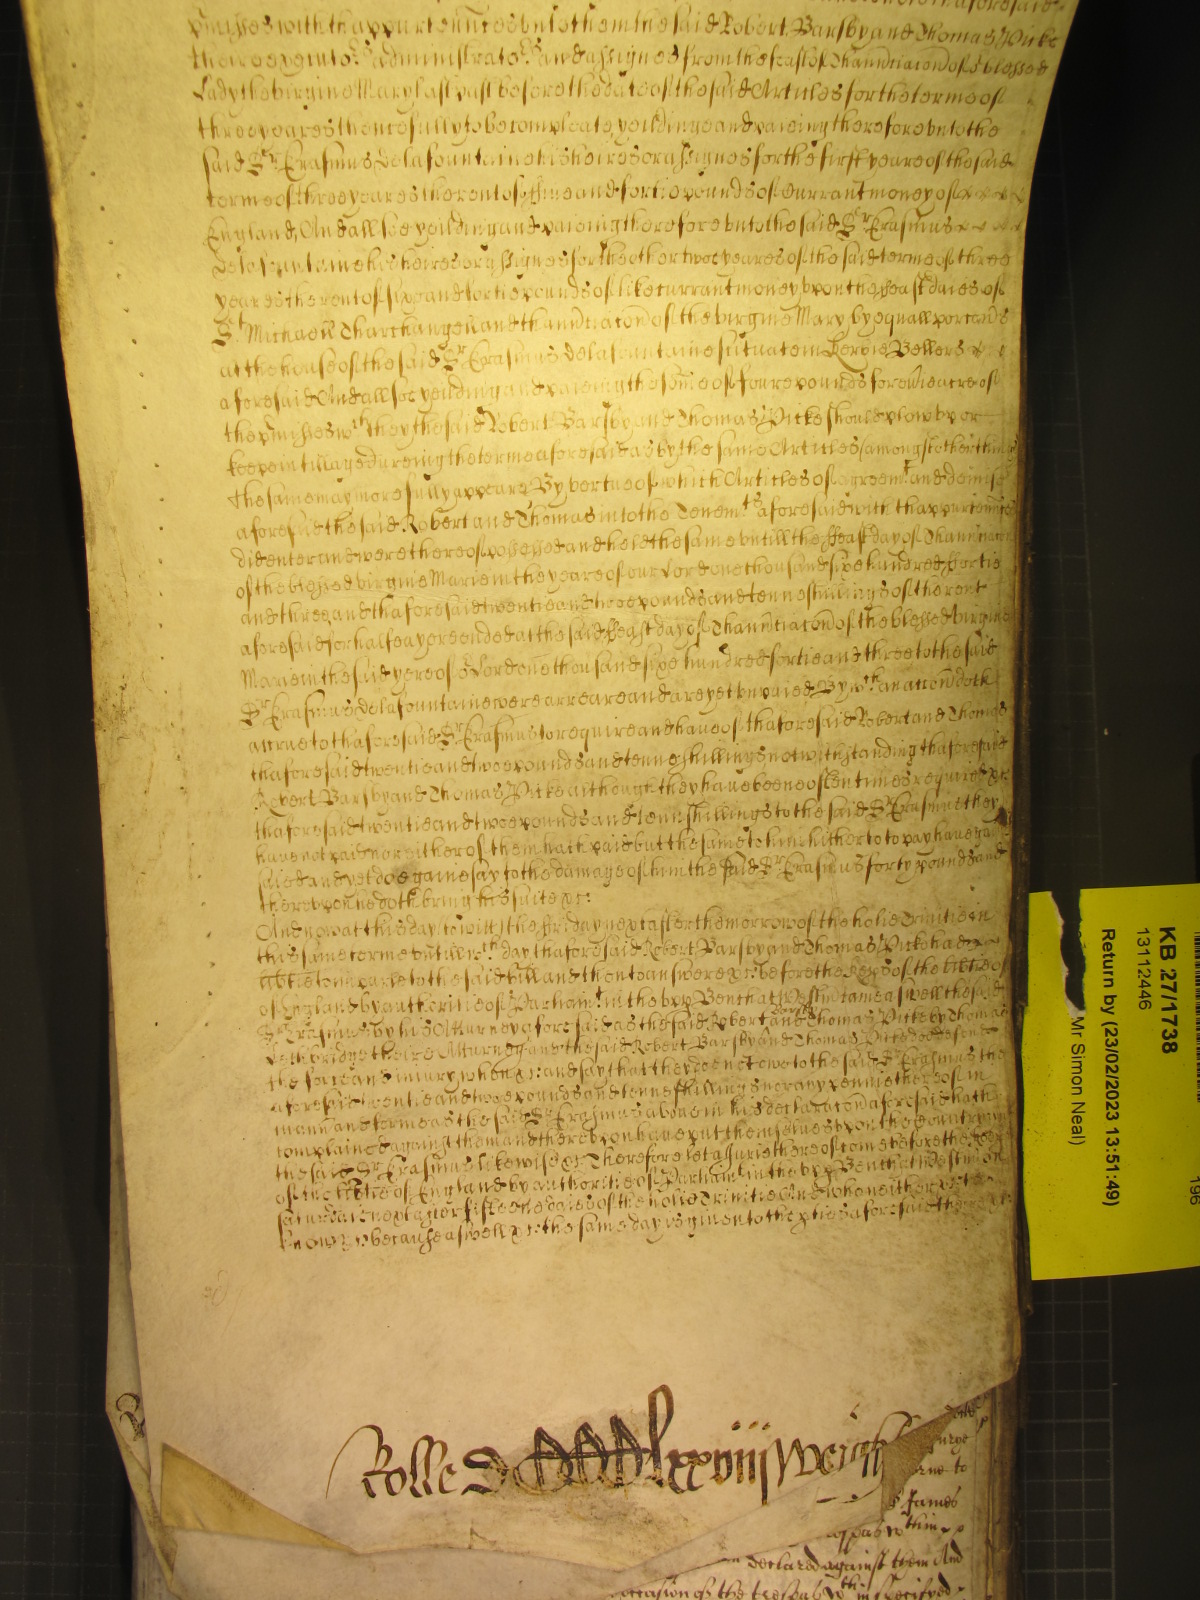 p'misses with th'appurtennces vnto them the said Robert Barsby and Thomas Picke
their executors administrators and assignes from the feast of Thannuciacon of the blessed
Lady the virgine Mary last past before the date of the said Articles for the terme of
three yeares thence fully to be compleate, yeildinge and paieing therefore vnto the
said Sr. Erasmus Delafountaine his heires or assignes for the first yeare of the said
terme of three yeares the rent of and fortie pounds of Currant money of
England, And allsoe yeilding and paieing therefore vnto the said Sr. Erasmus
Delafountaine his heires or assignes for the other twoe yeares of the said terme of three
yeares the rent of sixe and fortie pounds of like currant money vpon the ffeast daies of
St. Michaell Tharchangell and thannuciacon of the virgine Mary by equall porcons
at the house of the said Sr. Erasmus Delafountaine scituate in Kerbie Bellers
aforesaid And allsoe yeilding and paieing the some of foure pounds for everie acre of
the p'misses wch. they the said Robert Barsby and Thomas Picke should plow vp or
keepe in tillage dureing the terme aforesaid as by the same Articles (amongst other things
the same may more fully appeare By vertue of which Articles of agreemt. and demise
aforesaid the said Robert and Thomas into the Tenemts. aforesaid with thappurtennces
did enter and were thereof possessed and held the same vntill the ffeast day of Thannunciacon
of the blessed virgine Marie in the yeare of our Lord one thousand sixe hundred ffortie
and three, and thaforesaid twentie and twoe pounds and tenne shillings of the rent
aforesaid for halfe a yere ended at the said ffeast day of Thannuciacon of the blessed virgine
Marie in the said yere of or Lord one thousand sixe hundred fortie and three to the said
Sr. Erasmus Delafountaine were arreare and are yet vnpaied By wch. an accon doth
accrue to thaforesaid Sr. Erasmus to require and haue of thaforesaid Robert and Thomas
thaforesaid twentie and twoe pounds and tenne shillings notwithstanding thaforesaid
Robert Barsby and Thomas Picke although they haue beene often times required &c
thaforesaid twentie and twoe pounds and tenn shillings to the said Sr. Erasmus they
haue not paid nor either of them hath paid but the same to him hitherto to pay haue
said and yet doe gainesay to the damage of him the said Sr. Erasmus forty pounds and
therevpon hee doth bring his suite &c:
And now at this day (to witt) the ffriday next after the morrow of the holie Trinitie in
this same terme vntill wch. day thaforesaid Robert Barsby and Thomas Picke had
to imparle to the said bill and then to answere &c: before the of the libtie of
of England by authoritie of Parliamt. in the vpp Bench at Westm came aswell the said
Sr. Erasmus by his Atturney aforesaid as the said Robert Barsby and Thomas Picke by Thomas
Lethbridge theire Atturney and the said Robert Barsby and Thomas Picke doe defend
the force and iniury when &c: and say that they doe not owe to the said Sr. Erasmus the
aforesaid twentie and twoe pounds and tenne shillings nor any pennie thereof in
mann and forme as the said Sr. Erasmus aboue in his declaracon aforesaid hath
complained against them and therevpon haue put themselues vpon the Countrey and
the said Sr. Erasmus likewise &c. Therefore let a Jurie thereof come before the
of the libtie of England by authoritie of Parliamt. in the vpp Bench at Westm on
Saturday next after fifteene daies of the holie Trinitie And who neither &c to
know &c: because aswell &c: the same day is given to the pties aforesaid there &c:
Rolle lxxviij
KB 27/1738
13112446
Return by (23/02/2023 13:51:49)
Mr Simon Neal)
196
urge
rne to
James
trespas wthin
declared against them And
occasion of the trespas wthin specifyed